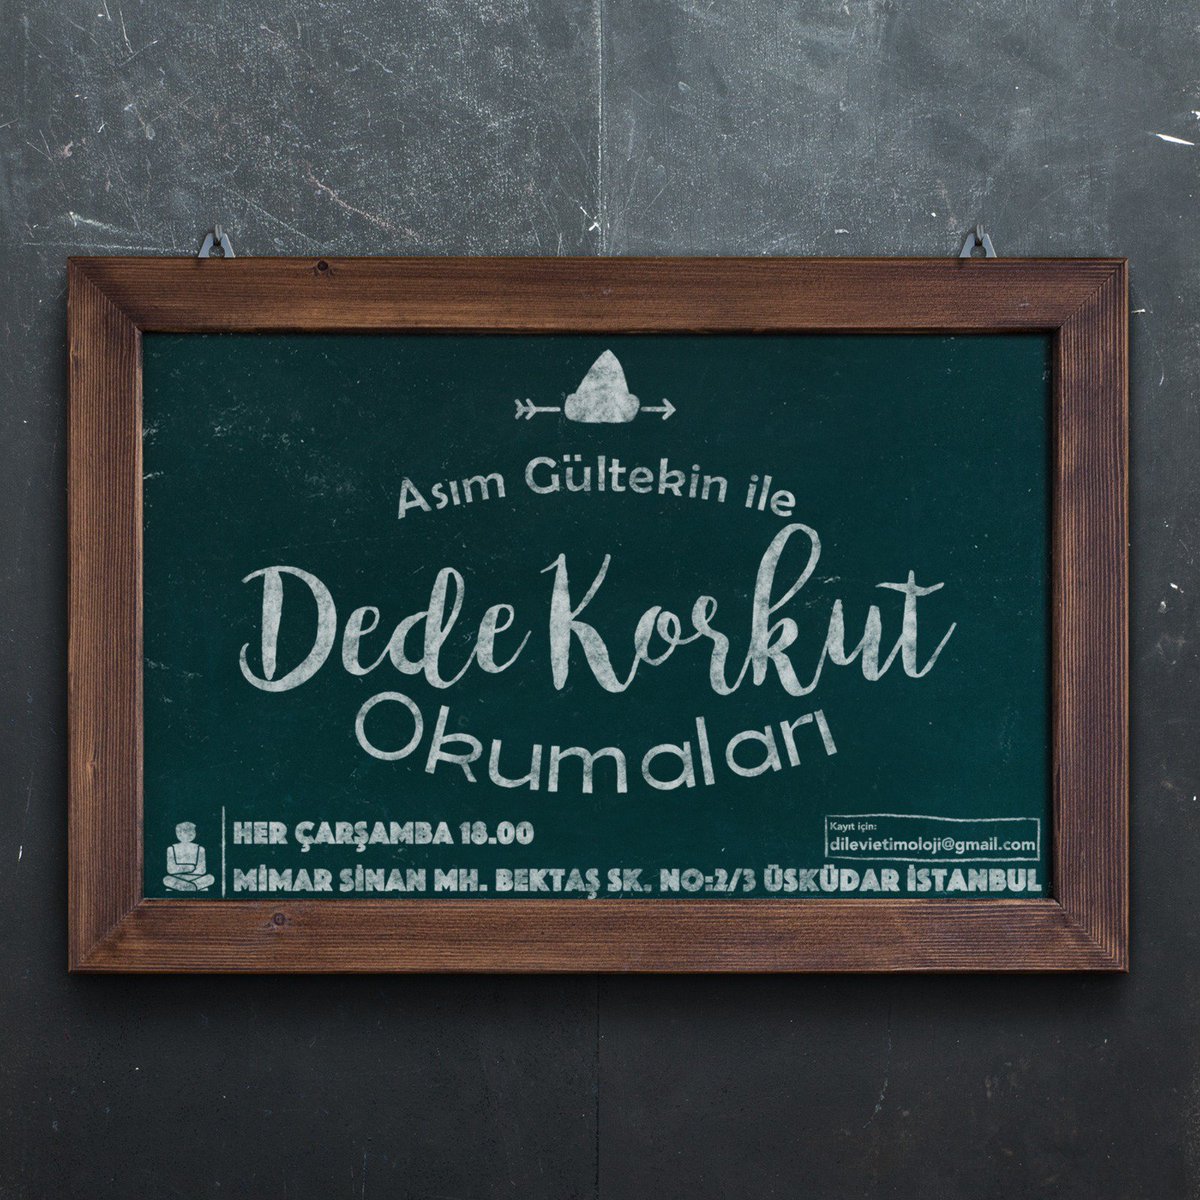 Asım Gültekin ile
Dede Korkut
Okumaları
HER ÇARŞAMBA 18.00
Kayıt için:
dilevietimoloji@gmail.com
MİMAR SİNAN MH. BEKTAŞ SK. NO:2/3 ÜSKÜDAR İSTANBUL